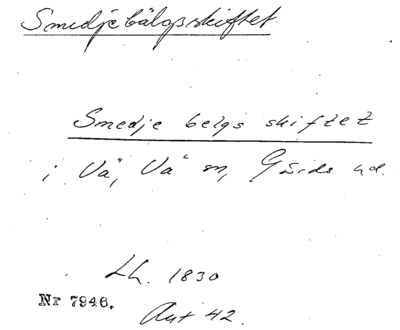 Smedjebälgsskiftet
Smedje belgs skiftet
i Vä, Vä sn, Gärds hd.
Lh. 1830
Nr 7946. Akt 42.